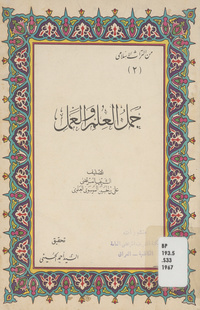 من التراث الاسلامي
(٢)
جمل العلم والعمل
تصنيف
الشريف المرتضى
علي بن الحسين الموسوي العلوي
تحقيق
السيد احمد الحسيني
BP
193.5
.S33
1967